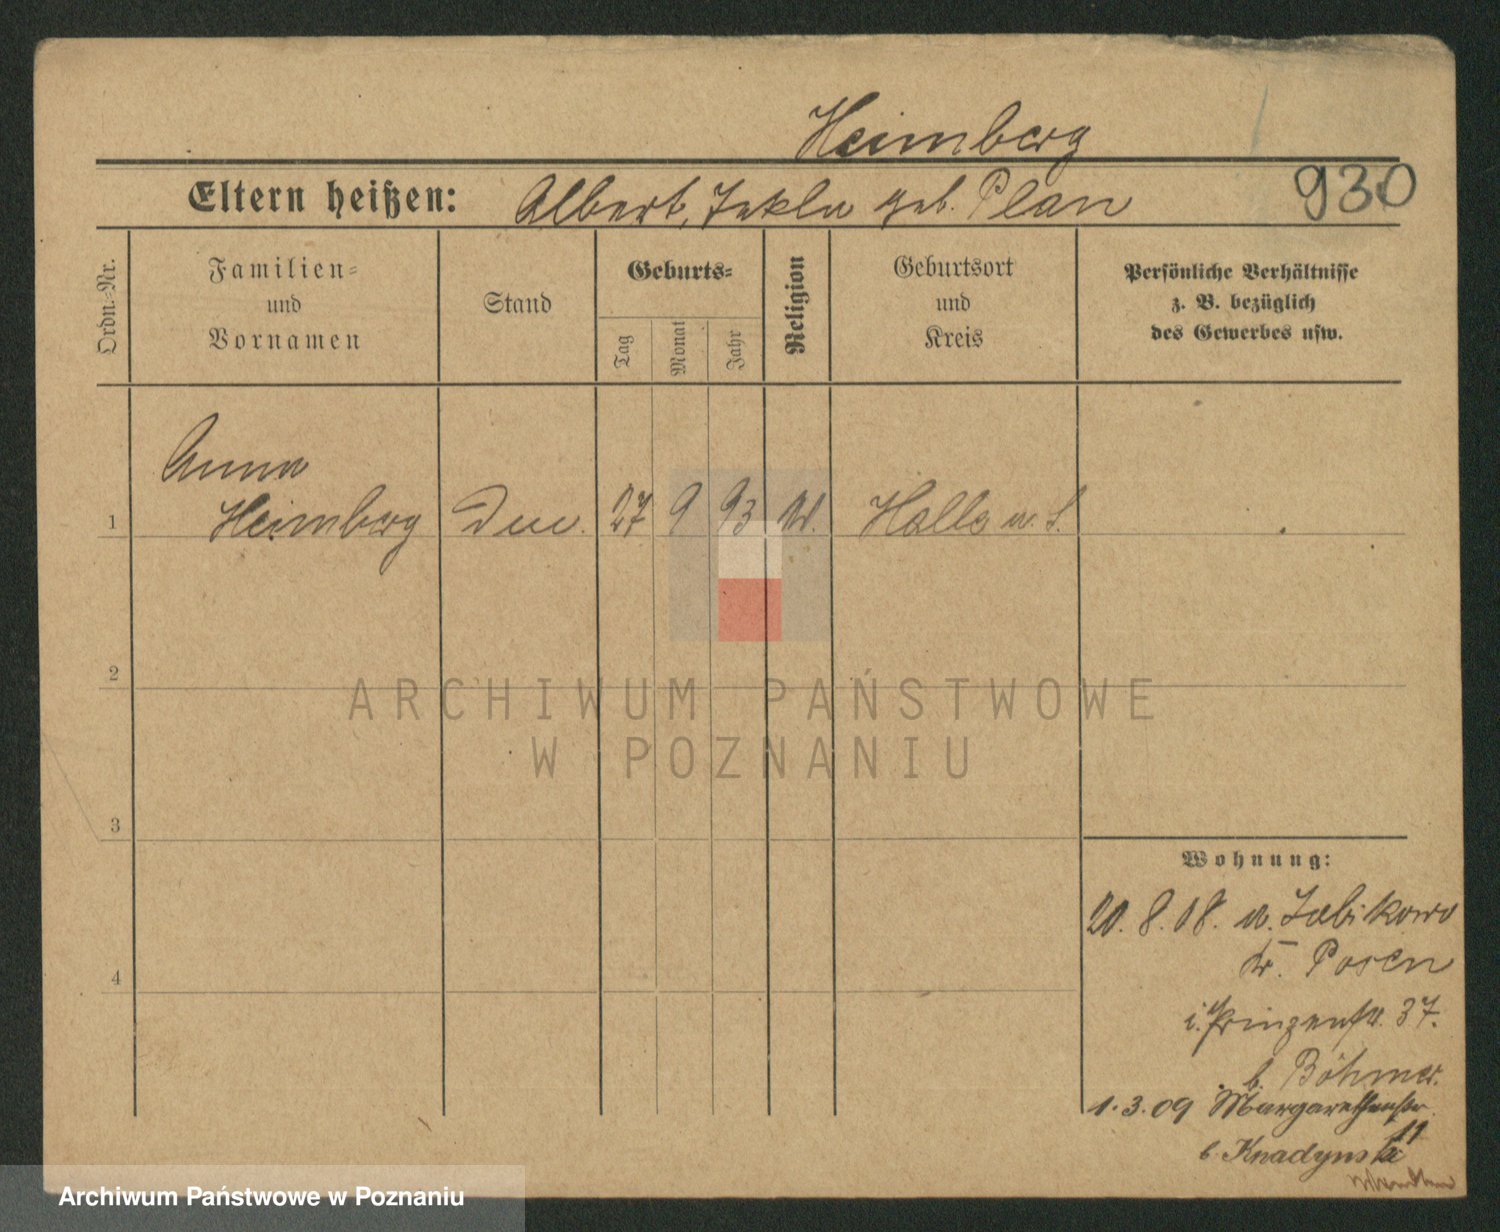 Heimberg
Eltern heißen: Albert, Tekla geb. Plan
930
Ordn.-Nr.
Familien-
und
Vornamen
Stand
Geburts-
Tag
Monat
Jahr
Religion
Geburtsort
und
Kreis
Persönliche Verhältnisse
z. B. bezüglich
des Gewerbes usw.
Anna
1 Heimberg 27 9 93 Halle a. S.
2
3
4
ARCHIWUM PAŃSTWOWE
W POZNANIU
Wohnung:
20. 8. 08. v. Zabikowo
Kr. Posen
i. Prinzenstr. 37.
b. Böhmer.
1. 3. 09 Margarethenstr.
11
b. Knadynski
Archiwum Państwowe w Poznaniu